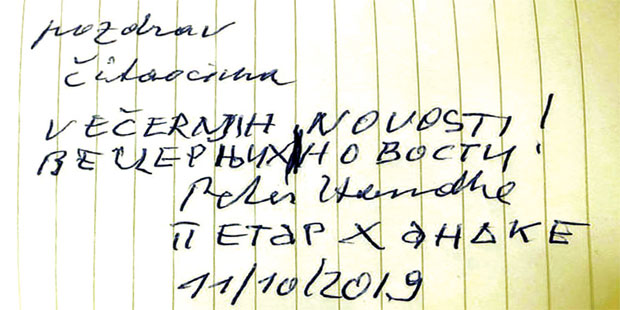 pozdrav
čitaocima
VEČERNJIH NOVOSTI!
ВЕЦЕРЊИХ НОВОСТИ!
Peter Handke
ПЕТАР ХАНДКЕ
11/10/2019